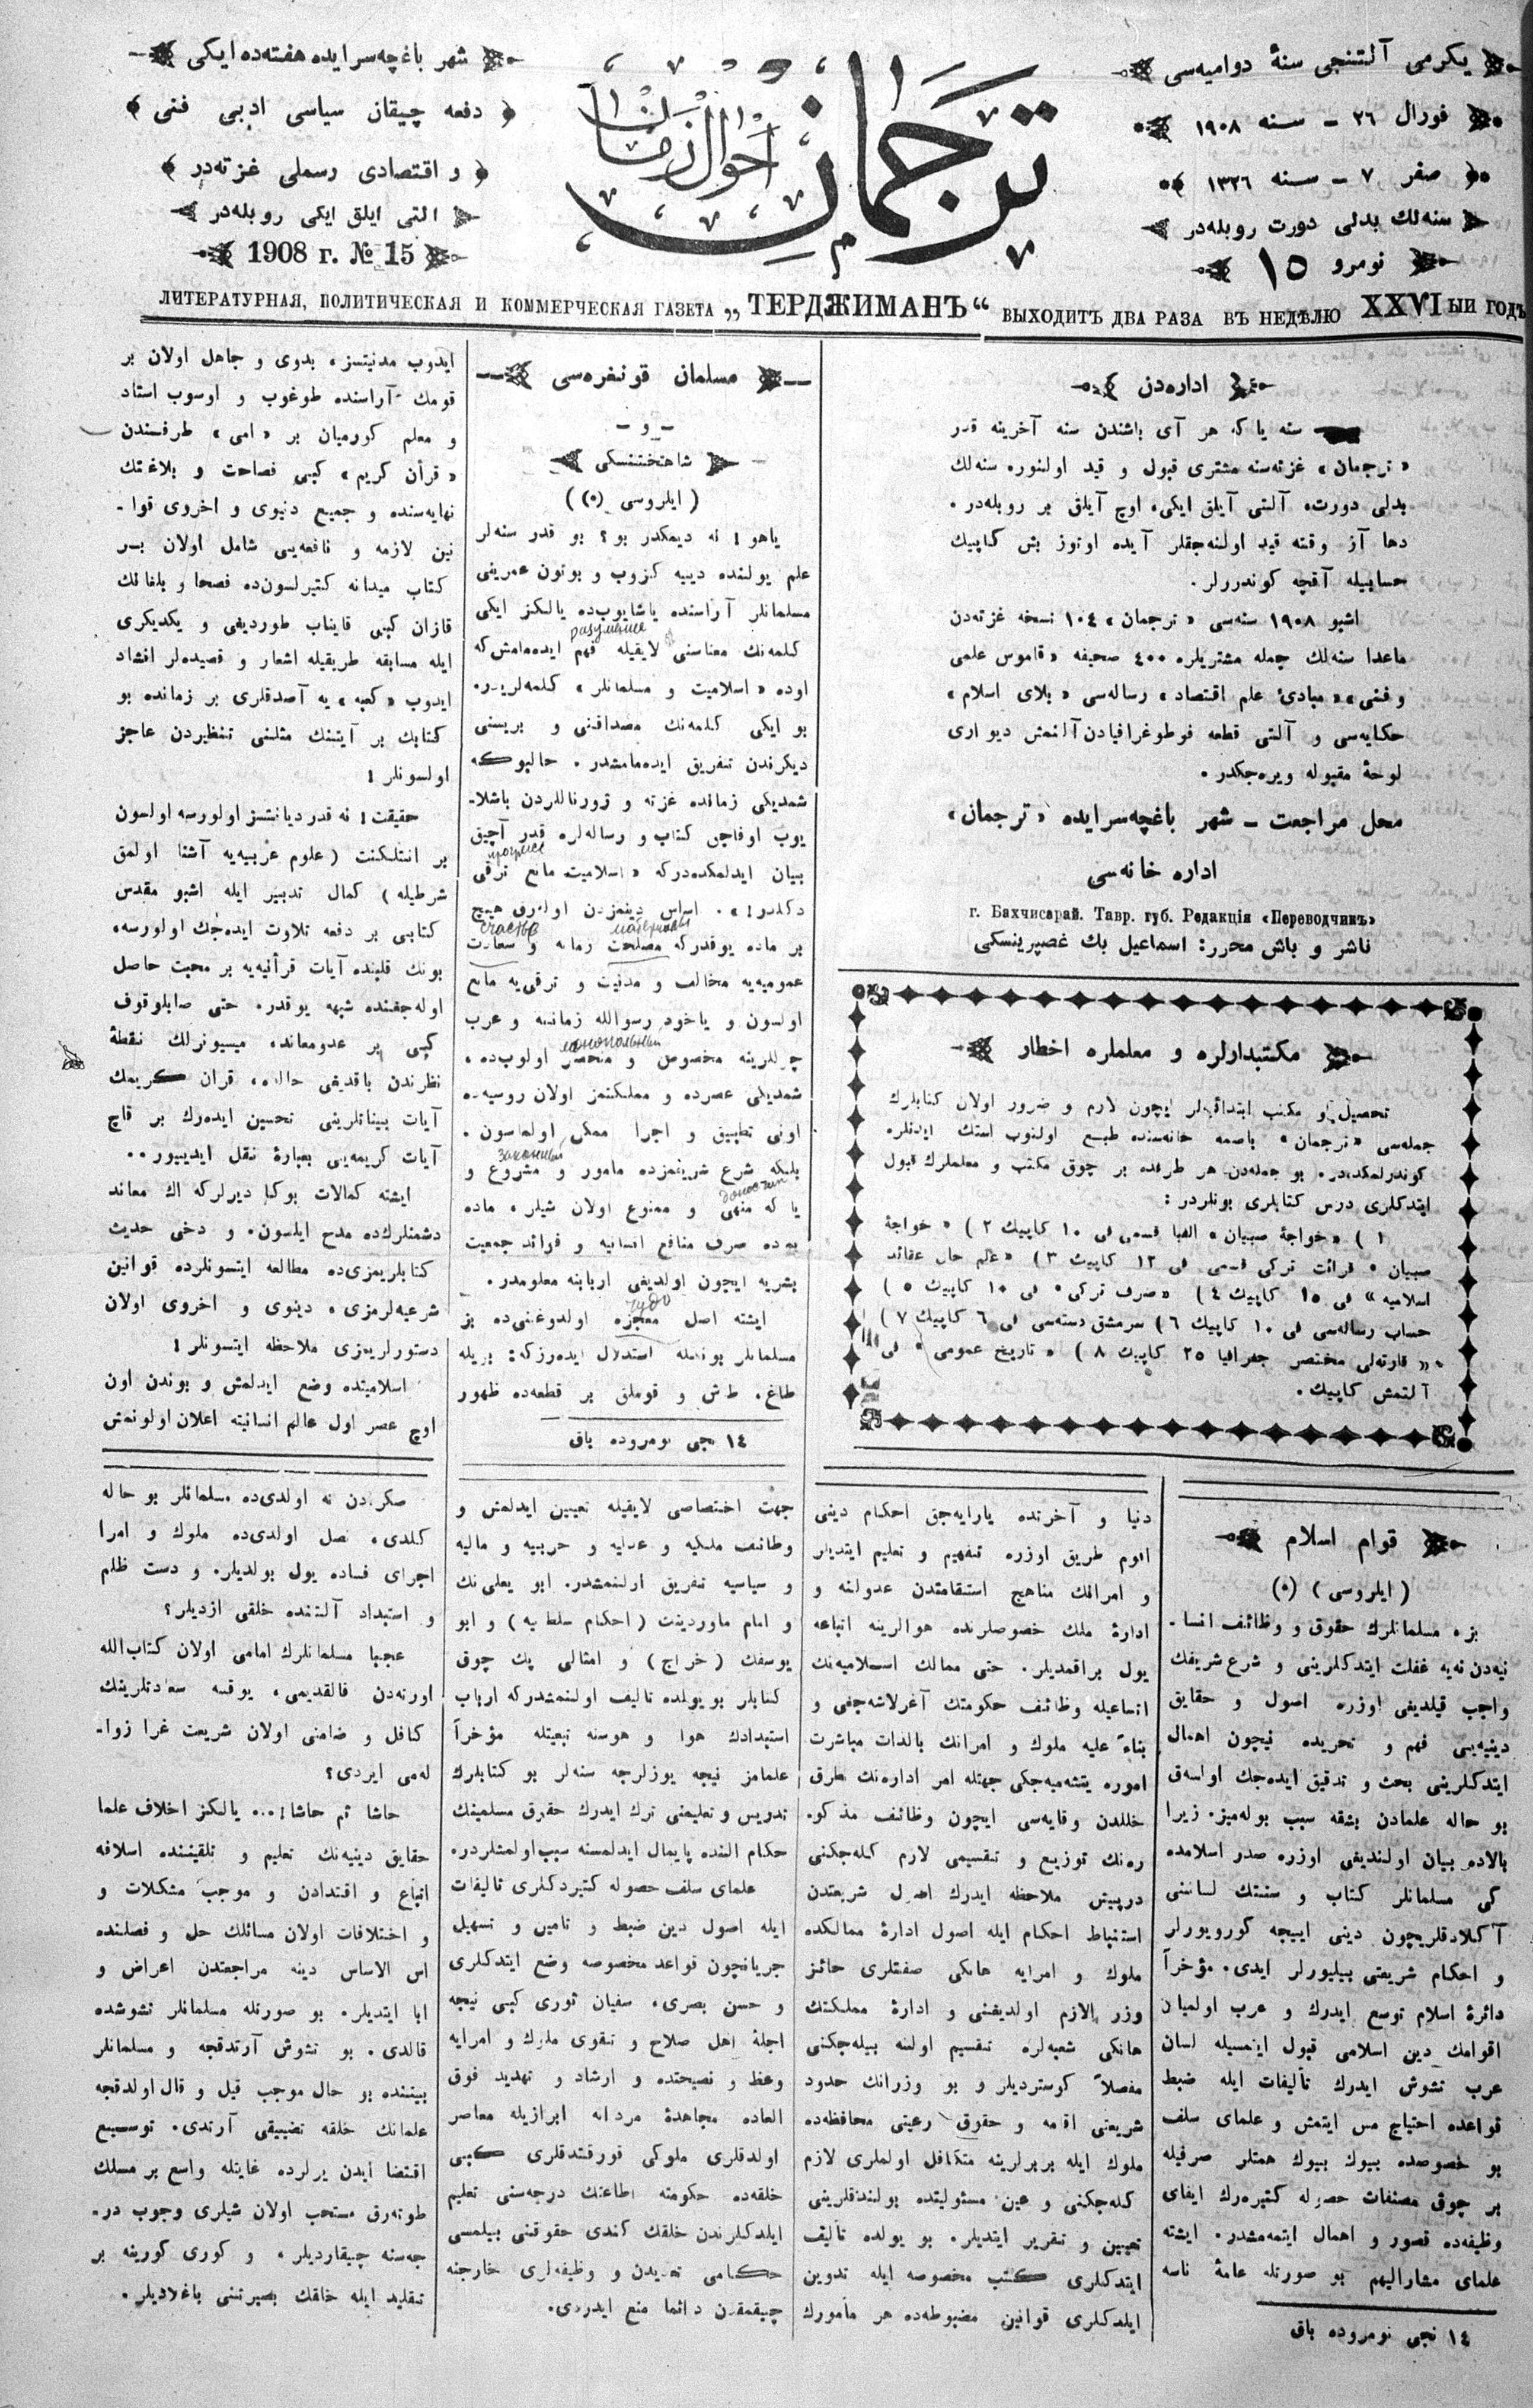 يكرمى آلتنجى سنهٔ دواميه‌سى
فورال ٢٦ ـ سنه ١٩٠٨
صفر ٧ ـ سنه ١٣٢٦
سنه‌لك بدلى دورت روبله‌در
نومرو ١٥
ترجمان
احوال زمان
شهر باغچه‌سرايده هفته‌ده ايكى
دفعه چيقان سياسى ادبى فنى
و اقتصادى رسملى غزته‌در
التى ايلق ايكى روبله‌در
1908 г. № 15
ЛИТЕРАТУРНАЯ, ПОЛИТИЧЕСКАЯ И КОММЕРЧЕСКАЯ ГАЗЕТА „ТЕРДЖИМАНЪ“ ВЫХОДИТЪ ДВА РАЗА ВЪ НЕДѢЛЮ XXVI ЫЙ ГОДЪ
اداره‌دن
سنه يا كه هر آى باشندن سنه آخرينه قدر
« ترجمان » غزته‌سنه مشترى قبول و قيد اولنور. سنه‌لك
بدلى دورت، آلتى آيلق ايكى، اوچ آيلق بر روبله‌در .
دها آز وقته قيد اولنه‌جقلر آيده اوتوز بش كاپيك
حسابيله آقچه كوندررلر.
اشبو ١٩٠٨ سنه‌سى « ترجمان » ١٠٤ نسخه غزته‌دن
ماعدا سنه‌لك جمله مشتريلره ٤٠٠ صحيفه « قاموس علمى
و فنى » « مبادئ علم اقتصاد » رساله‌سى « بلاى اسلام »
حكايه‌سى و آلتى قطعه فوطوغرافيادن آلنمش ديوارى
لوحهٔ مقبوله ويره‌جكدر .
محل مراجعت ـ شهر باغچه‌سرايده « ترجمان »
اداره خانه‌سى
г. Бахчисарай. Тавр. губ. Редакція «Переводчикъ»
ناشر و باش محرر: اسماعيل بك غصپرينسكى
مكتبدارلره و معلملره اخطار
جمله‌سى « ترجمان » باصمه خانه‌سنده طبع اولنوب استك ايدنلره
كوندرلمكده‌در. بو جمله‌دن هر طرفده بر چوق مكتب و معلملرك قبول
ايتدكلرى درس كتابلرى بونلردر :
١ ) « خواجهٔ صبيان » الفبا قسمى فى ١٠ كاپيك ٢ ) « خواجهٔ
صبيان » قرائت تركى قسمى فى ١٢ كاپيك ٣ ) « علم حال عقائد
اسلاميه » فى ١٥ كاپيك ٤ ) « صرف تركى » فى ١٠ كاپيك ٥ )
حساب رساله‌سى فى ١٠ كاپيك ٦ ) سرمشق دسته‌سى فى ٦ كاپيك ٧ )
« قارته‌لى مختصر جغرافيا ٢٥ كاپيك ٨ ) « تاريخ عمومى » فى
آلتمش كاپيك .
مسلمان قونغره‌سى
ـ و ـ
شاهتختنسكى
( ايلروسى (٠) )
ياهو ! نه ديمكدر بو ؟ بو قدر سنه‌لر
علم يولنده دييه كزوب و بوتون عمرينى
مسلمانلر آراسنده ياشايوب‌ده يالكز ايكى
разумение
كلمه‌نك معناسنى لايقيله فهم ايده‌مامش كه
اوده « اسلاميت و مسلمانلر » كلمه‌لريدر.
بو ايكى كلمه‌نك مصداقنى و بريسنى
ديكرندن تفريق ايده‌مامشدر . حالبوكه
شمديكى زمانده غزته و ژورناللردن باشلا-
يوب اوفاجق كتاب و رساله‌لره قدر آچيق
прогресс
بيان ايدلمكده‌دركه « اسلاميت مانع ترقى
دكلدر! » . اساس دينمزدن اولارق هيچ
счастье
بر ماده يوقدركه مصلحت زمانه و سعادت
عموميه‌يه مخالف و مدنيت و ترقى‌يه مانع
اولسون و ياخود رسوالله زماننه و عرب
монопольный
چوللرينه مخصوص و منحصر اولوب‌ده ،
شمديكى عصرده و مملكتمز اولان روسيه‌ده
اونى تطبيق و اجرا ممكن اولماسون .
законный
بلكه شرع شريفمزده مامور و مشروع و
يا كه منهى و ممنوع اولان شيلر ، ماده
بشريه ايچون اولديغى اربابنه معلومدر.
чудо
ايشته اصل معجزه اولدوغنى‌ده بز
مسلمانلر بونكله استدلال ايده‌رزكه: بويله
طاغ، طاش و قوملق بر قطعه‌ده ظهور
١٤ نجى نومروده باق
ايدوب مدنيتسز، بدوى و جاهل اولان بر
قومك آراسنده طوغوب و اوسوب استاد
و معلم كورميان بر « امى » طرفندن
« قرأن كريم » كبى فصاحت و بلاغتك
نهايه‌سنده و جميع دنيوى و اخروى قوا-
نين لازمه و نافعه‌يى شامل اولان بر
كتاب ميدانه كتيرلسون‌ده فصحا و بلغانك
قازان كبى قايناب طورديغى و يكديكرى
ايله مسابقه طريقيله اشعار و قصيده‌لر انشاد
ايدوب « كعبه » يه آصدقلرى بر زمانده بو
كتابك بر آيتنك مثلنى تنظيردن عاجز
اولسونلر !
حقيقت ! نه قدر ديانتسز اولورسه اولسون
بر انتلكنت ( علوم عربيه‌يه آشنا اولمق
شرطيله ) كمال تدبير ايله اشبو مقدس
كتابى بر دفعه تلاوت ايده‌جك اولورسه ،
بونك قلبنده آيات قرأنيه‌يه بر محبت حاصل
اوله‌جغنده شبهه يوقدر. حتى صابلوقوف
كبى بر عدومعاند ، ميسيونرلك نقطهٔ
نظرندن باقديغى حالده ، قران كريمك
آيات بيناتلرينى تحسين ايده‌رك بر قاچ
آيات كريمه‌يى بعبارهٔ نقل ايدييور ..
ايشته كمالات بوكا ديرلركه اك معاند
دشمنلرك‌ده مدح ايلسون. و دخى حديث
كتابلريمزى‌ده مطالعه ايتسونلرده قوانين
شرعيه‌لرمزى ، دينوى و اخروى اولان
دستورلريمزى ملاحظه ايتسونلر !
اسلاميتده وضع ايدلمش و بوندن اون
اوچ عصر اول عالم انسانيته اعلان اولونمش
قوام اسلام
( ايلروسى ) (٠)
بزه مسلمانلرك حقوق و وظائف انسا-
نيه‌دن نه‌يه غفلت ايتدكلرينى و شرع شريفك
واجب قيلديغى اوزره اصول و حقايق
دينيه‌يى فهم و تحريده نيچون اهمال
ايتدكلرينى بحث و تدقيق ايده‌جك اولسه‌ق
بو حاله علمادن بشقه سبب بوله‌ميز. زيرا
بالاده بيان اولنديغى اوزره صدر اسلامده
كى مسلمانلر كتاب و سنتك لساننى
آكلادقلريچون دينى اييچه كورويورلر
و احكام شريعتى بيليورلر ايدى. مؤخراً
دائرهٔ اسلام توسع ايدرك و عرب اولميان
اقوامك دين اسلامى قبول ايتمسيله لسان
عرب تشوش ايدرك تأليفات ايله ضبط
قواعده احتياج مس ايتمش و علماى سلف
بو خصوصده بيوك بيوك همتلر صرفيله
بر چوق مصنفات حصوله كتيره‌رك ايفاى
وظيفه‌ده قصور و اهمال ايتمه‌مشدر. ايشته
علماى مشاراليهم بو صورتله عامهٔ ناسه
١٤ نجى نومروده باق
دنيا و آخرتده يارايه‌جق احكام دينى
اقوم طريق اوزره تفهيم و تعليم ايتديلر
و امرانك مناهج استقامتدن عدولنه و
ادارهٔ ملك خصوصلرنده هوالرينه اتباعه
يول براقمديلر. حتى ممالك اسلاميه‌نك
اتساعيله وظائف حكومتك آغرلاشه‌جغى و
بناءً عليه ملوك و امرانك بالذات مباشرت
اموره يتشه‌ميه‌جكى جهتله امر اداره‌نك طرق
خللدن وقايه‌سى ايچون وظائف مذكو-
ره‌نك توزيع و تقسيمى لازم كله‌جكنى
درپيش ملاحظه ايدرك اصول شريعتدن
استنباط احكام ايله اصول ادارهٔ ممالكده
ملوك و امرايه هانكى صفتلرى حائز
وزرا لازم اولديغنى و ادارهٔ مملكتك
هانكى شعبه‌لره تقسيم اولنه بيله‌جكنى
مفصلاً كوسترديلر و بو وزرانك حدود
شريعتى اقامه و حقوق رعيتى محافظه‌ده
ملوك ايله بربرلرينه متكافل اولملرى لازم
كله‌جكنى و عين مسئوليتده بولندقلرينى
تعيين و تقرير ايتديلر. بو يولده تأليف
ايتدكلرى كتب مخصوصه ايله تدوين
ايلدكلرى قوانين مضبوطه‌ده هر مأمورك
جهت اختصاصى لايقيله تعيين ايدلمش و
وظائف ملكيه و عدليه و حربيه و ماليه
و سياسيه تفريق اولنمشدر. ابو يعلى‌نك
و امام ماوردينك ( احكام سلطانيه ) و ابو
يوسفك ( خراج ) و امثالى پك چوق
كتابلر بو يولده تاليف اولنمشدركه ارباب
استبدادك هوا و هوسنه تبعيتله مؤخراً
علمامز نيجه يوزلرجه سنه‌لر بو كتابلرك
تدريس و تعليمنى ترك ايدرك حقوق مسلمينك
حكام النده پايمال ايدلمسنه سبب اولمشلردر.
علماى سلف حصوله كتيردكلرى تاليفات
ايله اصول دين ضبط و تامين و تسهيل
جريانچون قواعد مخصوصه وضع ايتدكلرى
و حسن بصرى، سفيان ثورى كبى نيجه
اجلهٔ اهل صلاح و تقوى ملوك و امرايه
وعظ و نصيحتده و ارشاد و تهديد فوق
العاده مجاهدهٔ مردانه ابرازيله معاصر
اولدقلرى ملوكى قورقتدقلرى كبى
خلقه‌ده حكومته اطاعتك درجه‌سنى تعليم
ايلدكلرندن خلقك كندى حقوقنى بيلمسى
حكامى تعديدن و وظيفه‌لرى خارجنه
چيقمقدن دائما منع ايدردى.
صكره‌دن نه اولدى‌ده مسلمانلر بو حاله
كلدى، نصل اولدى‌ده ملوك و امرا
اجراى فساده يول بولديلر. و دست ظلم
و استبداد آلتنده خلقى ازديلر ؟
عجبا مسلمانلرك امامى اولان كتاب‌الله
اورته‌دن قالقديمى، يوقسه سعادتلرينك
كافل و ضامنى اولان شريعت غرا زوا-
له‌مى ايردى ؟
حاشا ثم حاشا !... يالكز اخلاف علما
حقايق دينيه‌نك تعليم و تلقيننده اسلافه
اتباع و اقتدادن و موجب مشكلات و
و اختلافات اولان مسائلك حل و فصلنده
اس الاساس دينه مراجعتدن اعراض و
ابا ايتديلر. بو صورتله مسلمانلر تشوشده
قالدى. بو تشوش آرتدقجه و مسلمانلر
بيننده بو حال موجب قيل و قال اولدقجه
علمانك خلقه تضييقى آرتدى. توسيع
اقتضا ايدن يرلرده غايتله واسع بر مسلك
طوته‌رق مستحب اولان شيلرى وجوب در-
جه‌سنه چيقارديلر ، و كورى كورينه بر
تقليد ايله خلقك بصيرتنى باغلاديلر.